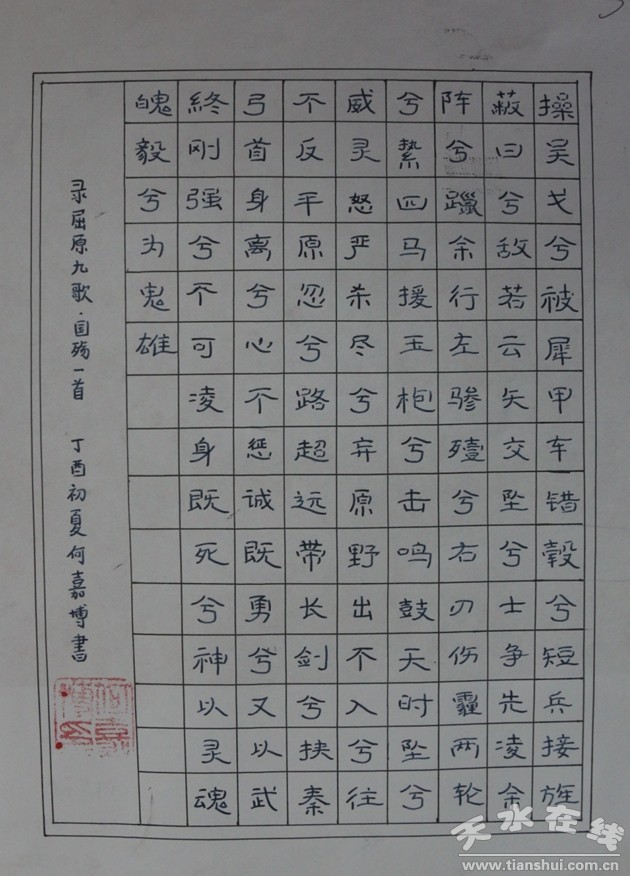 操吴戈兮被犀甲车错毂兮短兵接旌
蔽日兮敌若云矢交坠兮士争先凌余
阵兮躐余行左骖殪兮右刃伤霾两轮
兮絷四马援玉枹兮击鸣鼓天时坠兮
威灵怒严杀尽兮弃原野出不入兮往
不反平原忽兮路超远带长剑兮挟秦
弓首身离兮心不惩诚既勇兮又以武
終刚强兮不可凌身既死兮神以灵魂
魄毅兮为鬼雄
录屈原九歌·国殇一首 丁酉初夏何嘉博書
天水在线
www.tianshui.com.cn